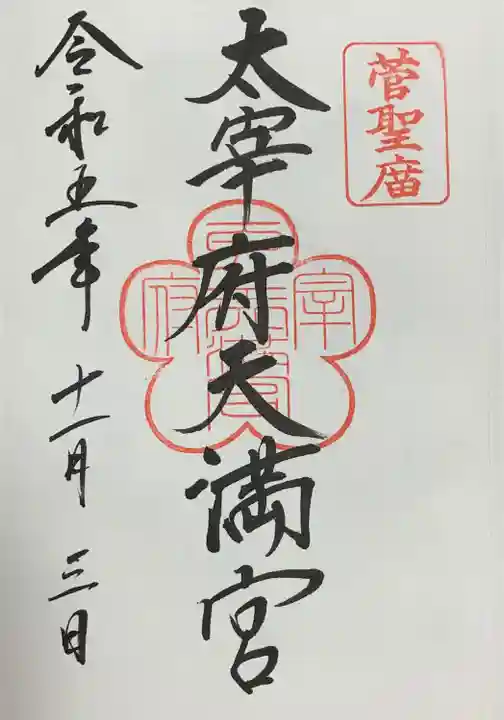 菅聖庿
太宰府天満宮
令和五年 十一月 三日